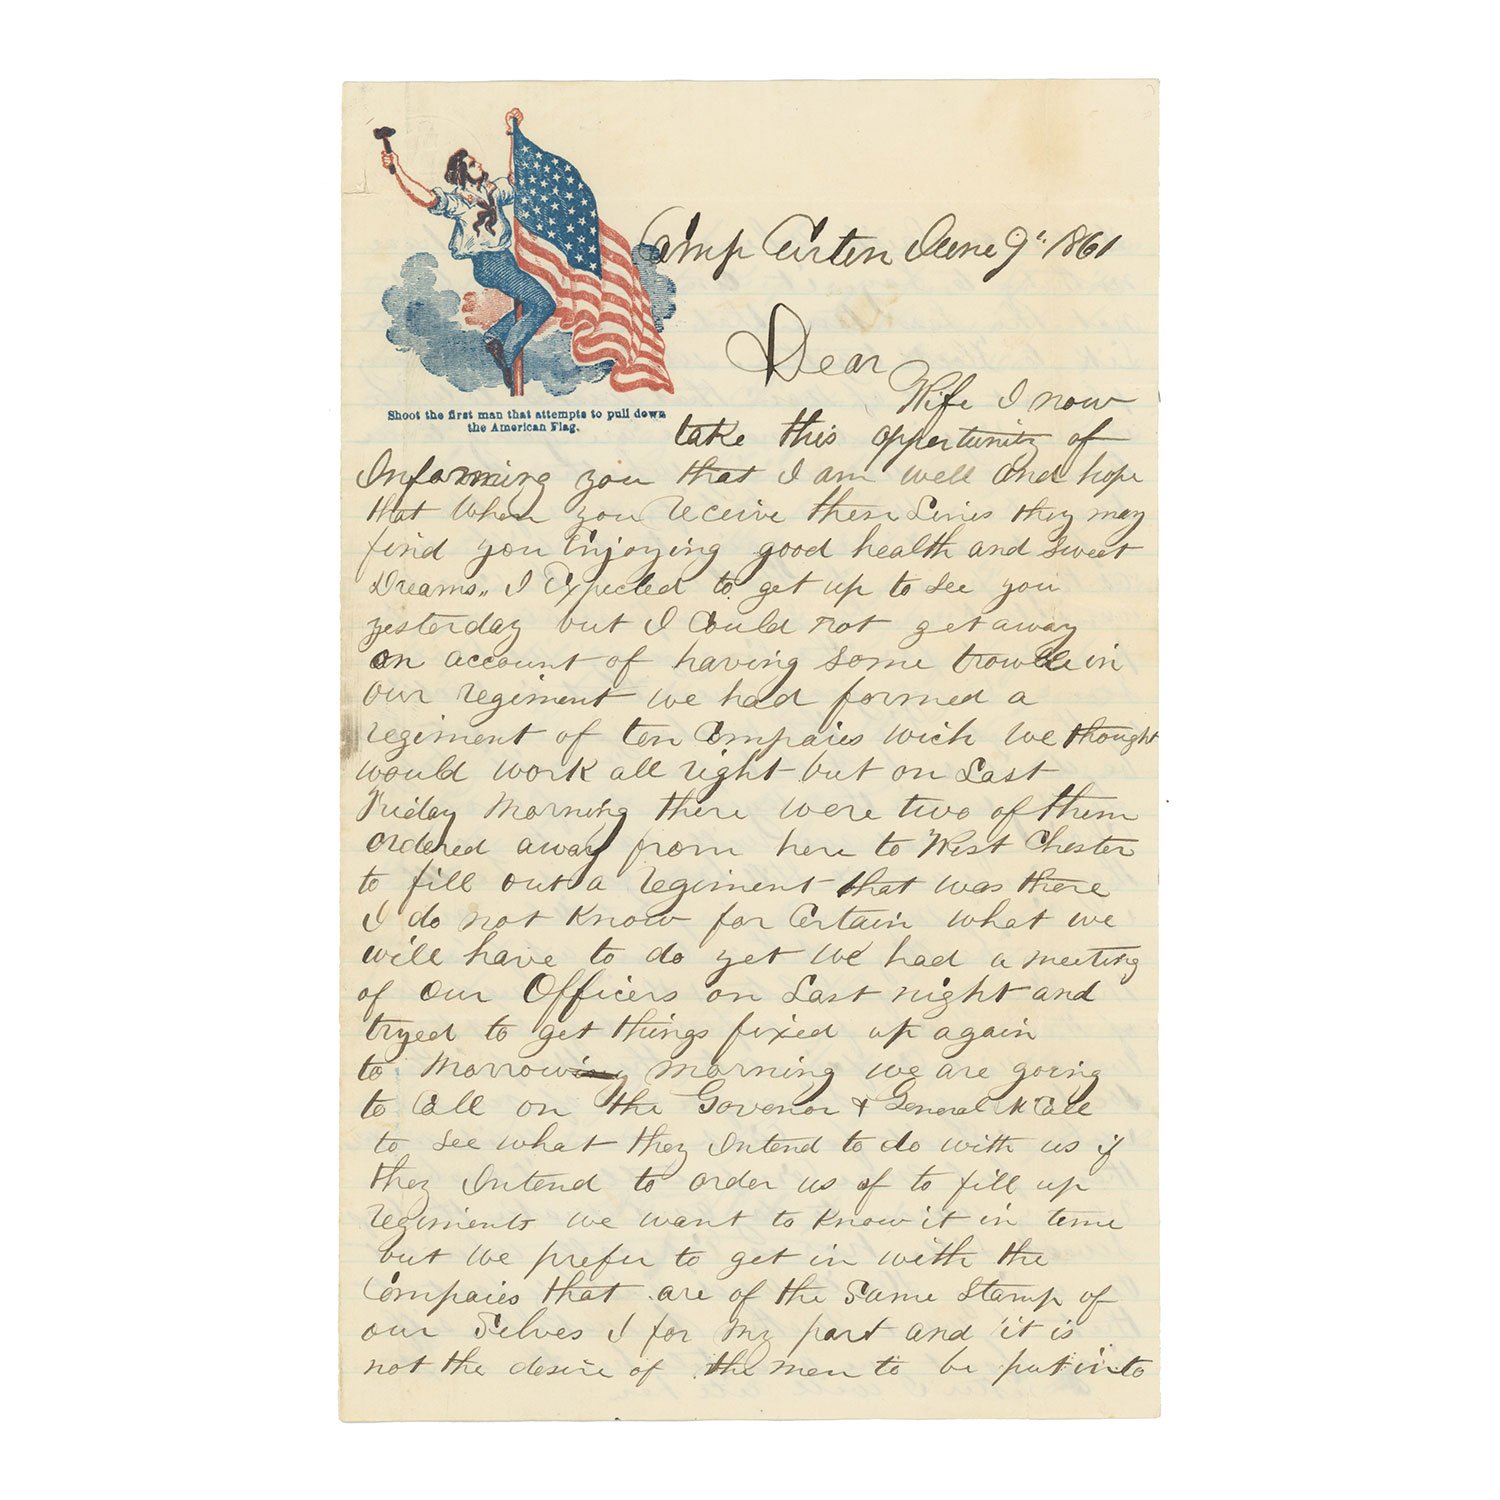 Camp Curten June 9th 1861
Shoot the first man that attempts to pull down
the American Flag.
Dear
Wife I now
take this oppertunity of
Informing you that I am well and hope
that when you receive these Lines they may
find you Enjoying good health and sweet
Dreams,, I Expected to get up to see you
yesterday but I Could not get away
on account of having some trowble in
our regiment we had formed a
regiment of ten Compaies wich we thought
would work all right but on Last
Friday Morning there were two of them
ordered away from here to West Chester
to fill out a regiment that was there
I do not Know for Certain what we
will have to do yet We had a meeting
of our Officers on Last night and
tryed to get things fixed up again
to Morrow morning we are going
to Call on the Govenor & General McCall
to see what they Intend to do with us if
they Intend to order us of to fill up
regiments we want to Know it in time
but we prefer to get in with the
Compaies that are of the Same Stamp of
our Selves I for my part and it is
not the desire of the men to be put into